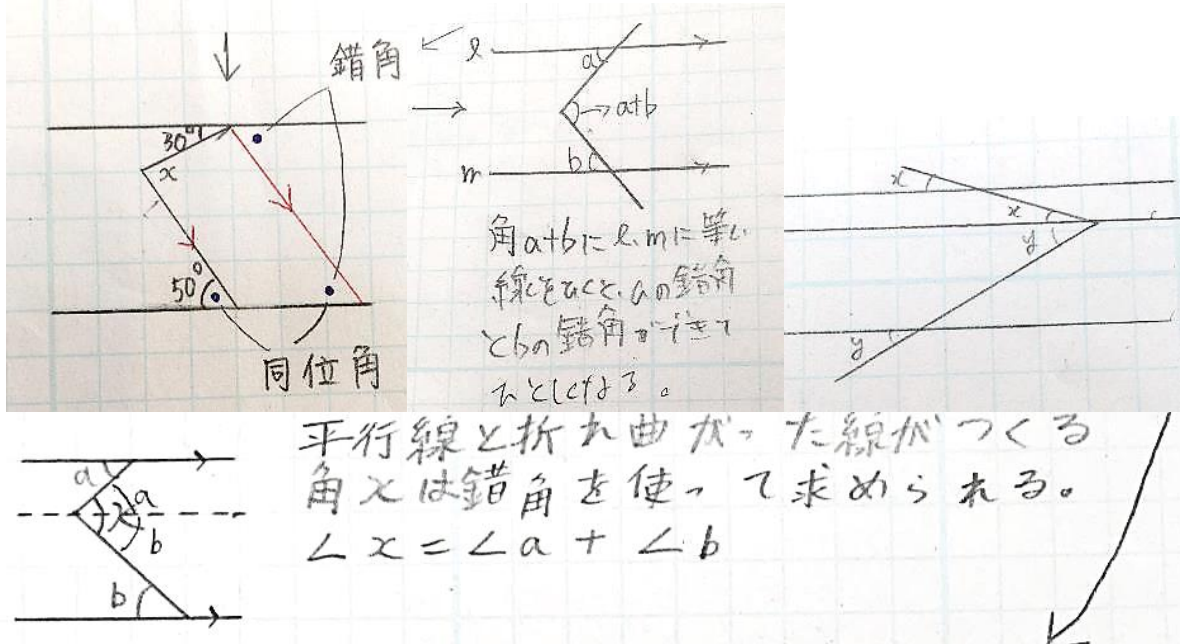 錯角
30°
x
50°
同位角
l
a
→a+b
m
b
角a+bにl、mに等しい
線をひくと、aの錯角
とbの錯角ができて
ひとしくなる。
x
x
y
y
a
a
x
b
b
平行線と折れ曲がった線がつくる
角xは錯角を使って求められる。
∠x=∠a+∠b